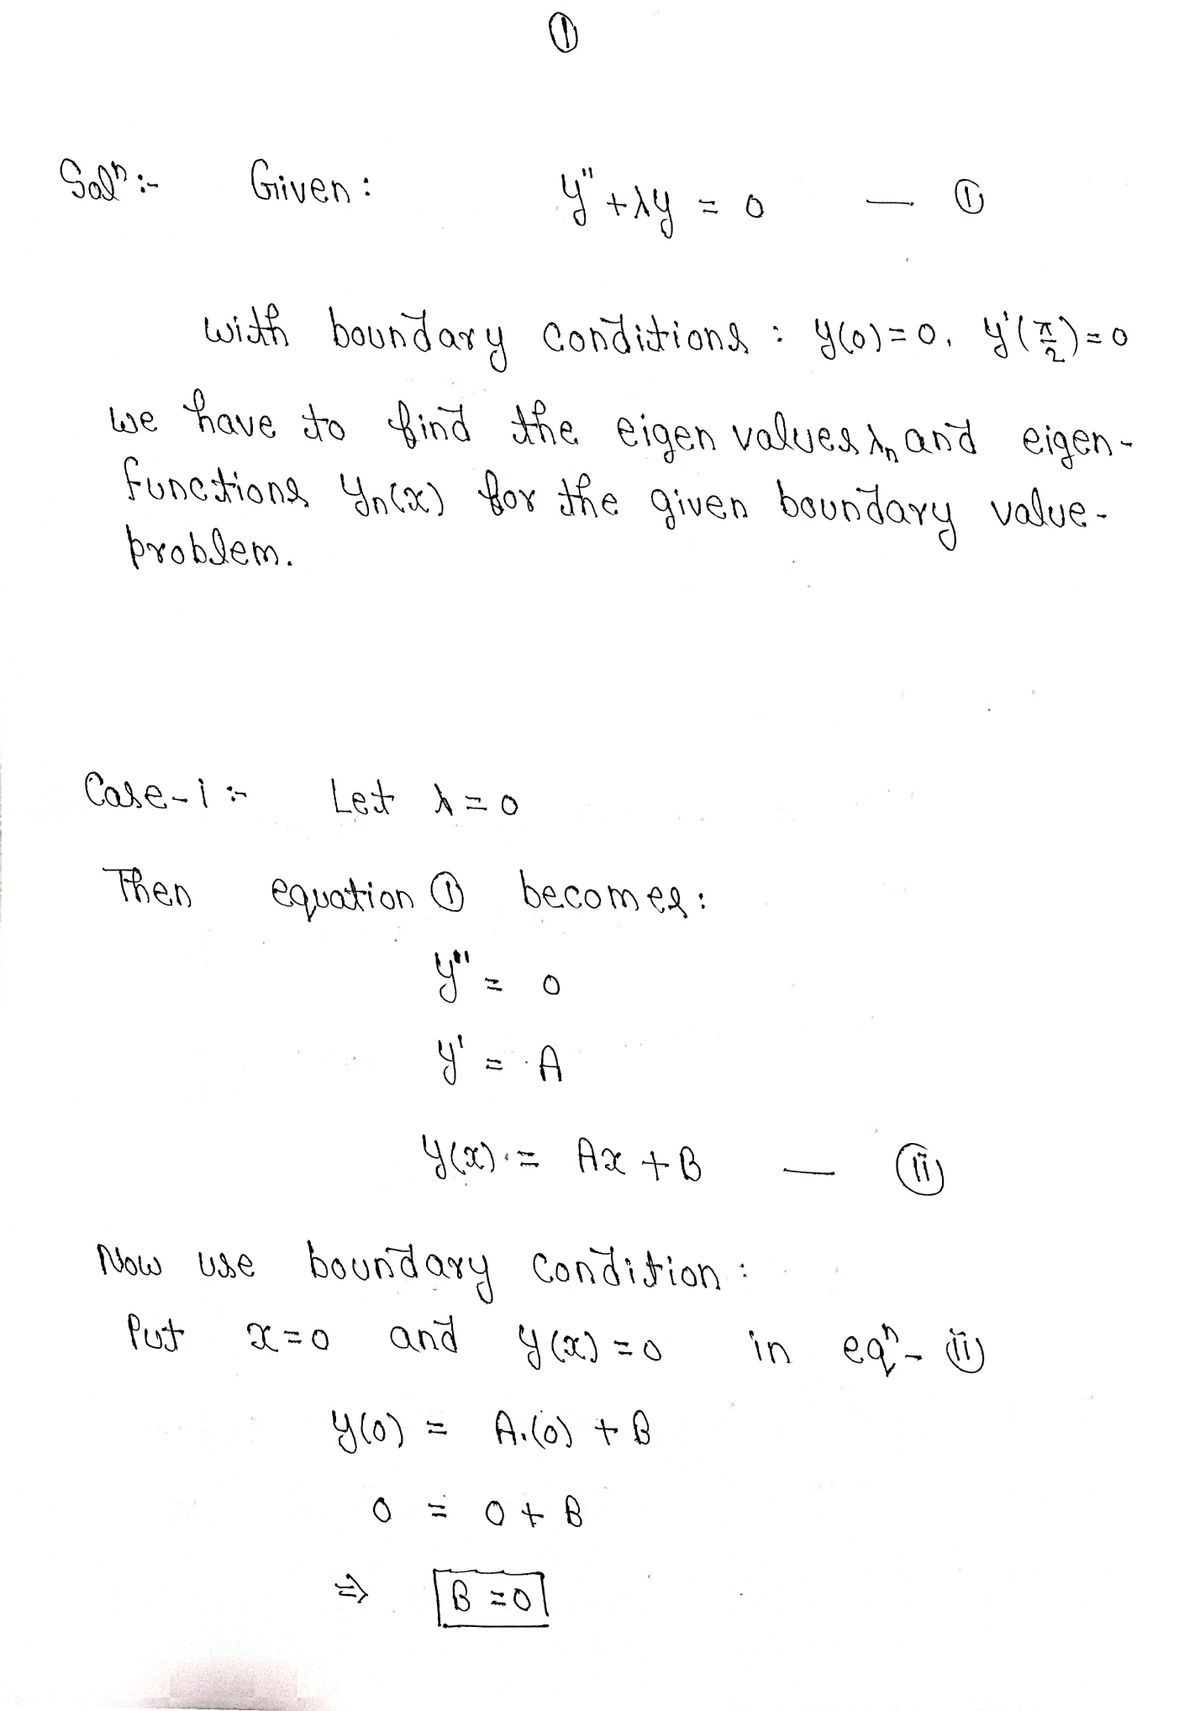 ①
Solⁿ:- Given: y'' + λy = 0 — ①
with boundary conditions : y(0)=0, y'(π/2)=0
we have to find the eigen values λₙ and eigen-
functions yₙ(x) for the given boundary value-
problem.
Case-i :- Let λ = 0
Then equation ① becomes:
y'' = 0
y' = A
y(x) = Ax + B — (ii)
Now use boundary condition :
Put x=0 and y(x) = 0 in eqⁿ- (ii)
y(0) = A.(0) + B
0 = 0 + B
⇒ B = 0